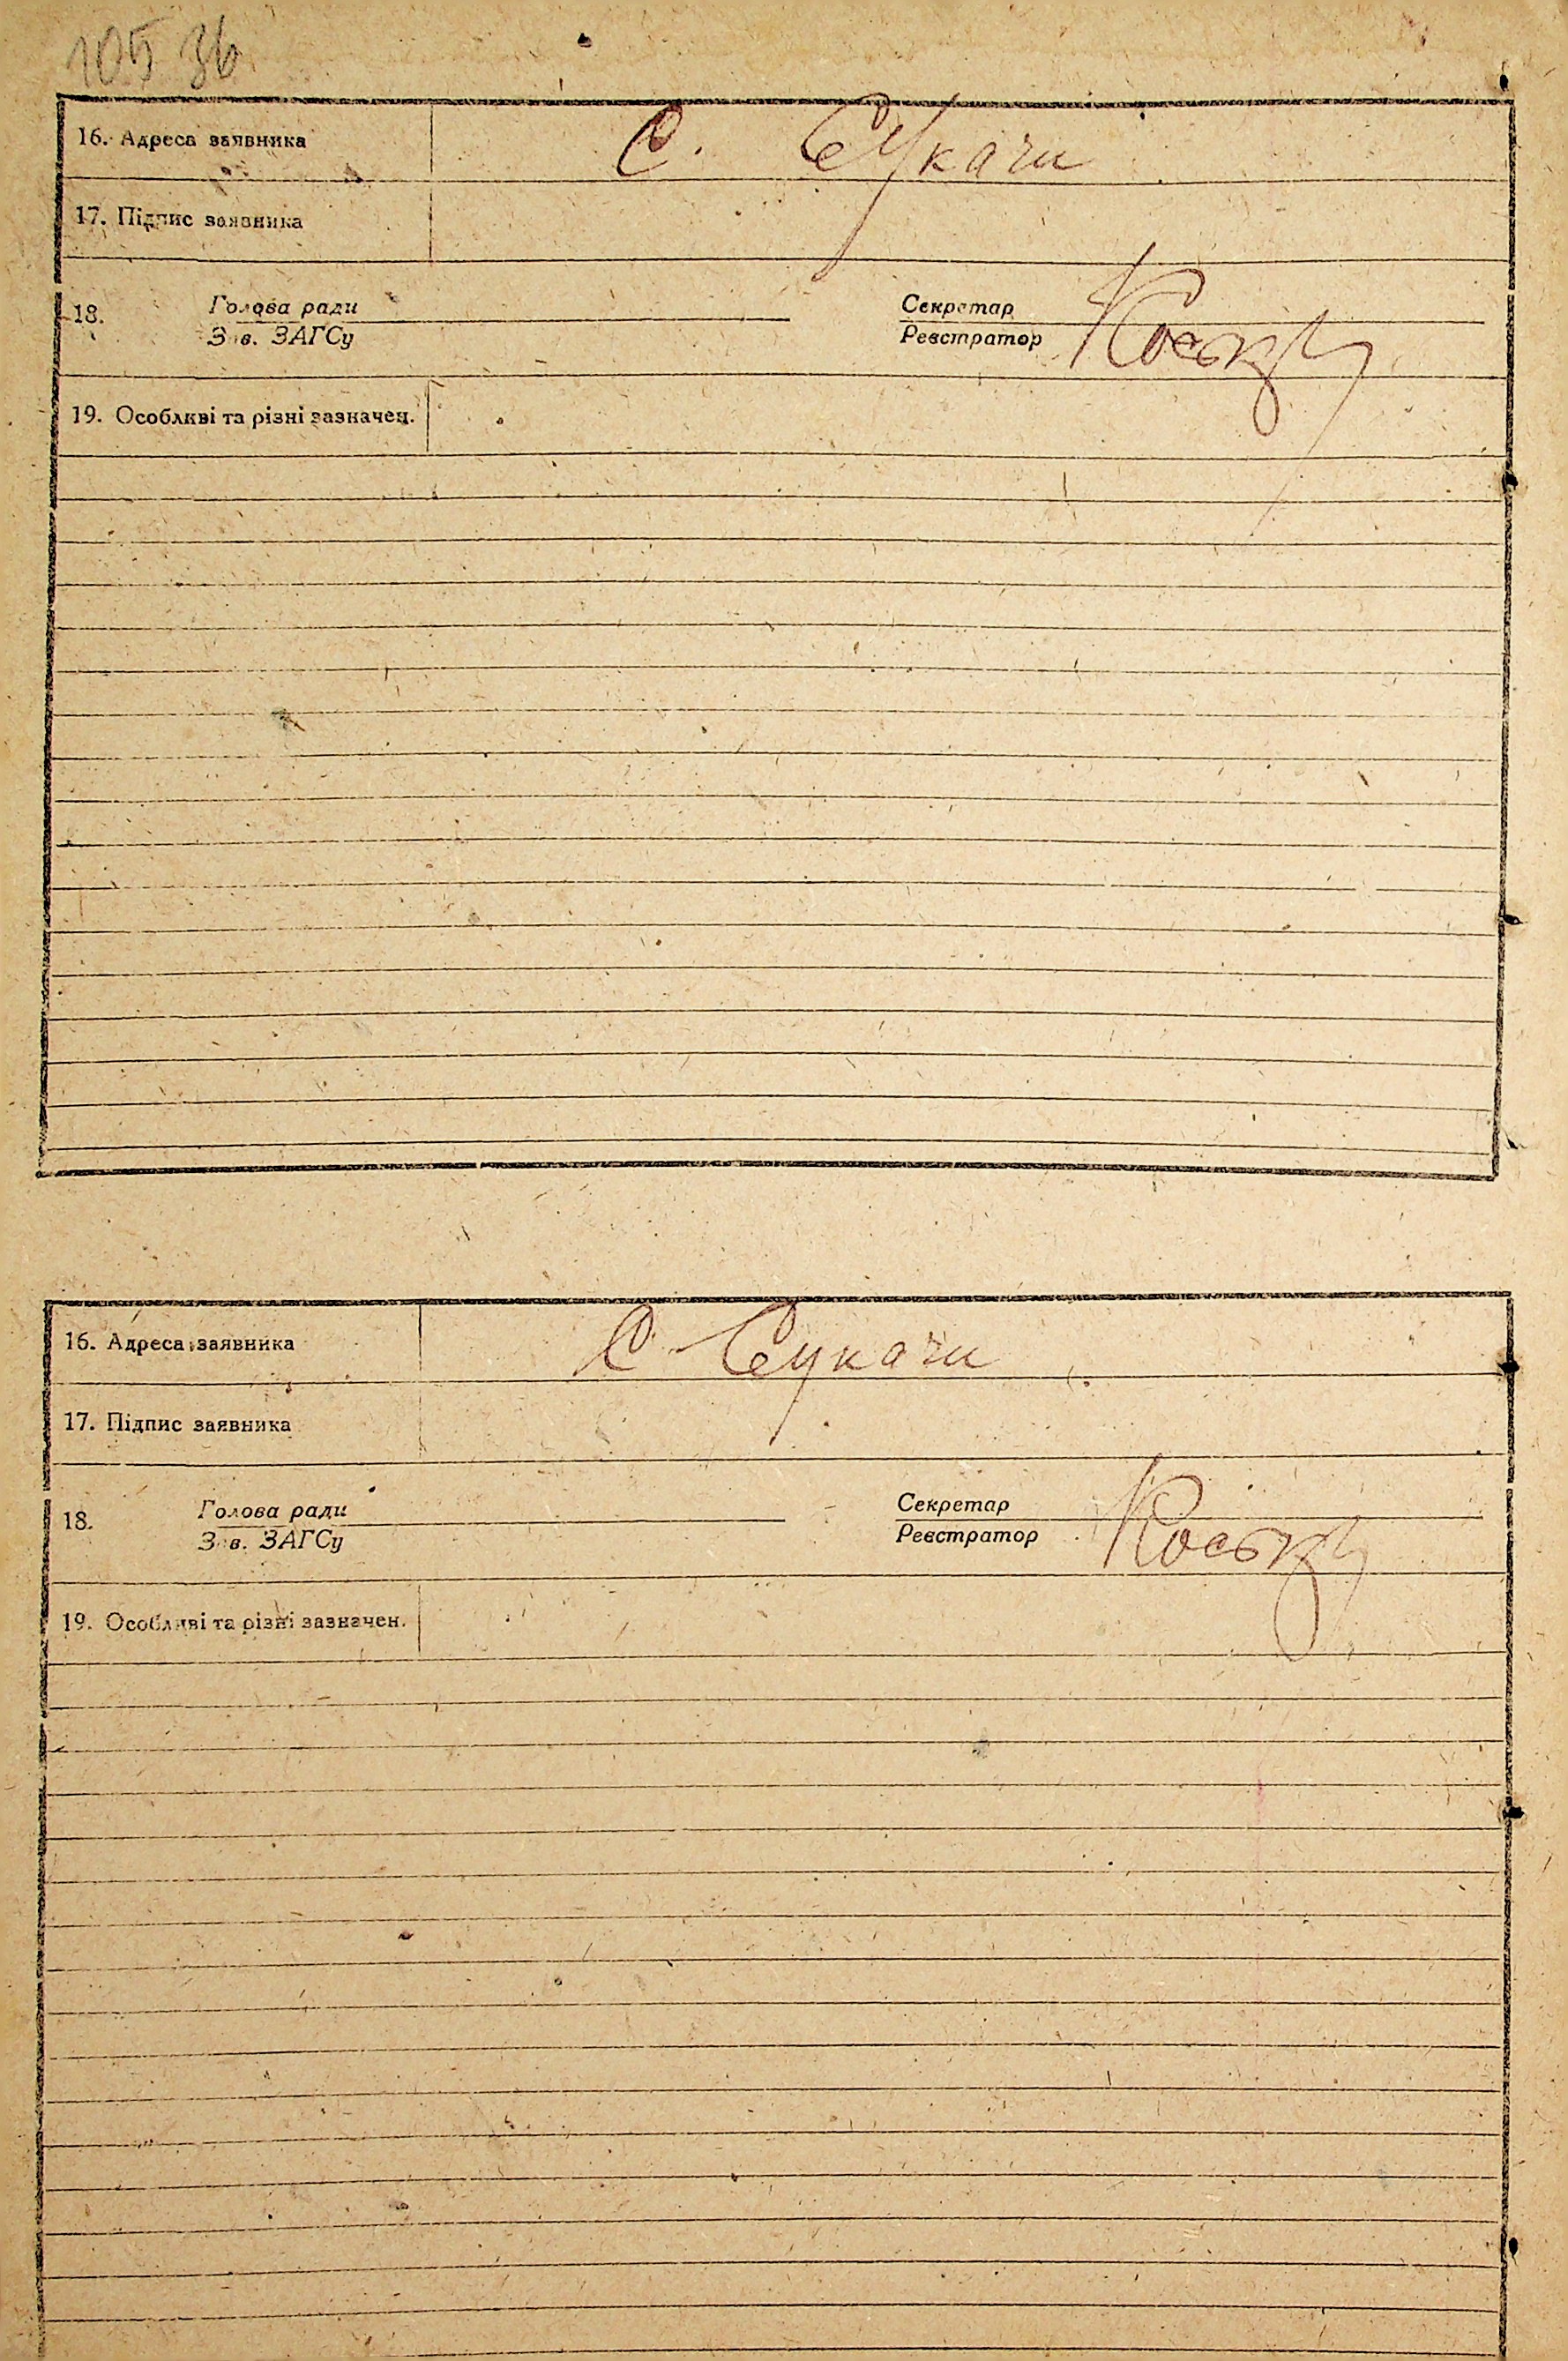 105 36
16. Адреса заявника С. Сукачи
17. Підпис заявника
18. Голова ради Секретар
Зав. ЗАГСу Реєстратор
19. Особливі та різні зазначен.
16. Адреса заявника С. Сукачи
17. Підпис заявника
18. Голова ради Секретар
Зав. ЗАГСу Реєстратор
19. Особливі та різні зазначен.